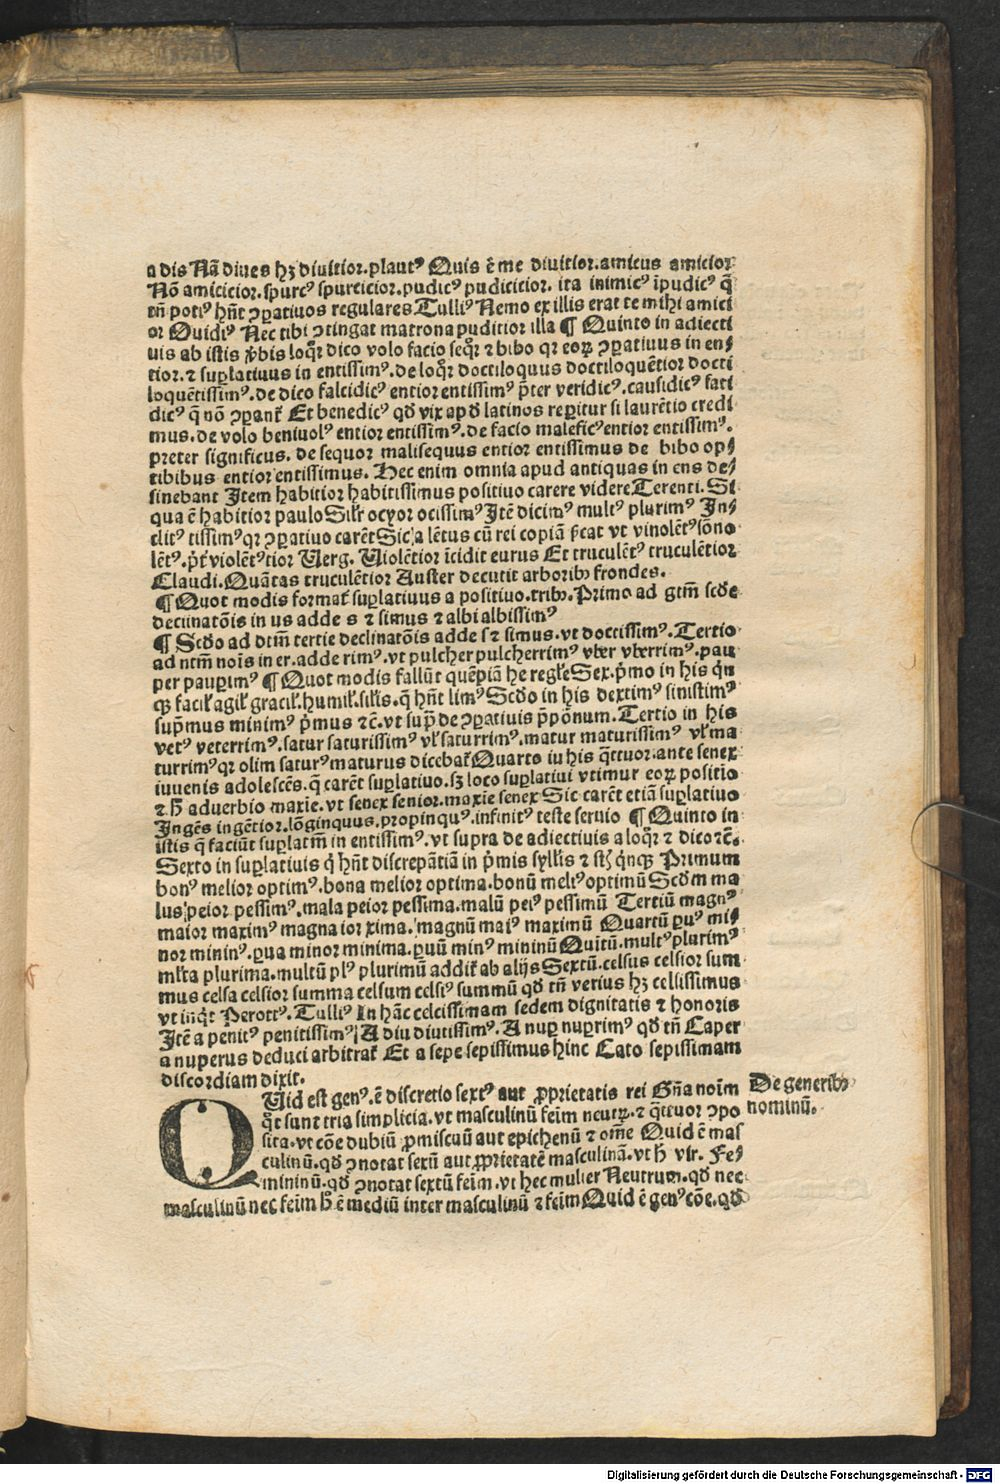 a dis Nã diues hꝫ diuitior. plautꝰ Quis ẽ me diuitior. amicus amicior
Nõ amicicior. spurcꝰ spurcicior. pudicꝰ pudicicior. ita inimicꝰ ĩpudicꝰ q̃
tñ potiꝰ hñt ꝯpatiuos regulares Tulliꝰ Nemo ex illis erat te mihi amici
or Ouidiꝰ Nec tibi ꝯtingat matrona puditior illa ¶ Quinto in adiecti
uis ab istis v̾bis loqr̃ dico volo facio seqr̃ ⁊ bibo qr eoꝝ ꝯpatiuus in en⸗
tior. ⁊ suꝑlatiuus in entissimꝰ. de loqr̃ doctiloquus doctiloquẽtior docti
loquẽtissimꝰ. de dico falcidicꝰ entior entissimꝰ p̃ter veridicꝰ. causidicꝰ fati
dicꝰ q̃ nõ ꝯparãt Et benedicꝰ qd̾ vix apd̾ latinos reꝑitur si laurẽtio credi
mus. de volo beniuolꝰ entior entissimꝰ. de facio maleficꝰ entior entissimꝰ.
preter significus. de sequor malisequus entior entissimus de bibo op⸗
tibibus entior entissimus. Hec enim omnia apud antiquas in ens de⸗
sinebant Item habitior habitissimus positiuo carere videre Terenti. Si
qua ẽ habitior paulo Silr̃ ocyor ocissimꝰ Itẽ dicimꝰ multꝰ plurimꝰ In⸗
clitꝰ tissimꝰ qr ꝯpatiuo carẽt Sic a lẽtus cũ rei copiã p̃cat vt vinolẽtꝰ sõno
lẽtꝰ. p̃t violẽtꝰ tior Uerg. Uiolẽtior ĩcidit eurus Et truculẽtꝰ truculẽtior
Claudi. Quãtas truculẽtior Auster decutit arboribꝫ frondes.
¶ Quot modis format̃ suꝑlatiuus a positiuo. tribꝫ. Primo ad gtm̃ scd̾e
declinatõis in us adde s ⁊ simus ⁊ albi albissimꝰ
¶ Scd̾o ad dtm̃ tertie declinatõis adde s ⁊ simus. vt doctissimꝰ. Tertio
ad ntm̃ noĩs in er. adde rimꝰ. vt pulcher pulcherrimꝰ vber vberrimꝰ. pau
per pauꝑimꝰ ¶ Quot modis fallũt quẽpiã he regl̃e Sex. p̾mo in his q̾n
qꝫ facil̃ agil̃ gracil̃. humil̃. sil̃is. q̃ hñt limꝰ Scd̾o in his dextimꝰ sinistimꝰ
sup̃mus minimꝰ p̾mus ⁊c̃. vt sup̃ de ꝯpatiuis p̃põnum. Tertio in his
vetꝰ veterrimꝰ. satur saturissimꝰ vl̃ saturrimꝰ. matur maturissimꝰ vl̃ ma
turrimꝰ qr olim saturꝰ maturus dicebat̃ Quarto iu his q̃ttuor. ante senex
iuuenis adolescẽs. q̃ carẽt suꝑlatiuo. sꝫ loco suꝑlatiui vtimur eoꝝ positio
⁊ h̾ aduerbio maxie. vt senex senior. maxie senex Sic carẽt etiã suꝑlatiuo
Ingẽs ingẽtior. lõginquus. propinquꝰ. infinitꝰ teste seruio ¶ Quinto in
istis q̃ faciũt suꝑlatm̃ in entissimꝰ. vt supra de adiectiuis a loqr̃ ⁊ dico ⁊c̃.
Sexto in suꝑlatiuis q̾ hñt discrepãtiã in p̾mis syll̃is ⁊ st̾ q̾nqꝫ Primum
bonꝰ melior optimꝰ. bona melior optima. bonũ meliꝰ optimũ Scd̾m ma
lus peior pessimꝰ. mala peior pessima. malũ peiꝰ pessimũ Tertiũ magnꝰ
maior maximꝰ magna ior xima. magnũ maiꝰ maximũ Quartũ ꝑuꝰ mi⸗
nor minimꝰ. ꝑua minor minima. ꝑuũ minꝰ mininũ Quĩtũ. multꝰ plurimꝰ
ml̃ta plurima. multũ plꝰ plurimũ addit̃ ab alijs Sextũ. celsus celsior sum
mus celsa celsior summa celsum celsiꝰ summũ qd̾ tñ verius hꝫ celsissimus
vt inq̾t Perottꝰ. Tulliꝰ In hãc celcissimam sedem dignitatis ⁊ honoris
Itẽ a penitꝰ penitissimꝰ A diu diutissimꝰ. A nuꝑ nuꝑrimꝰ qd̾ tñ Caper
a nuperus deduci arbitrat̃ Et a sepe sepissimus hinc Cato sepissimam
discordiam dixit.
QUid est genꝰ. ẽ discretio sextꝰ aut ꝓprietatis rei Gña noĩm
q̾t sunt tria simplicia. vt masculinũ feĩm neutꝝ. ⁊ q̃ttuor ꝯpo
sita. vt cõe dubiũ ꝓmiscuũ aut epichenũ ⁊ om̃e Quid ẽ mas
culinũ. qd̾ ꝯnotat sexũ aut ꝓprietatẽ masculinã. vt h̾ vir. Fe⸗
mininũ. qd̾ ꝯnotat sextũ feĩm. vt hec mulier Neutrum. qd̾ nec
masculinũ nec feĩm h̾ ẽ mediũ inter masculinũ ⁊ feĩm Quid ẽ genꝰ cõe. qd̾
De generibꝫ
nominũ.
Digitalisierung gefördert durch die Deutsche Forschungsgemeinschaft - DFG